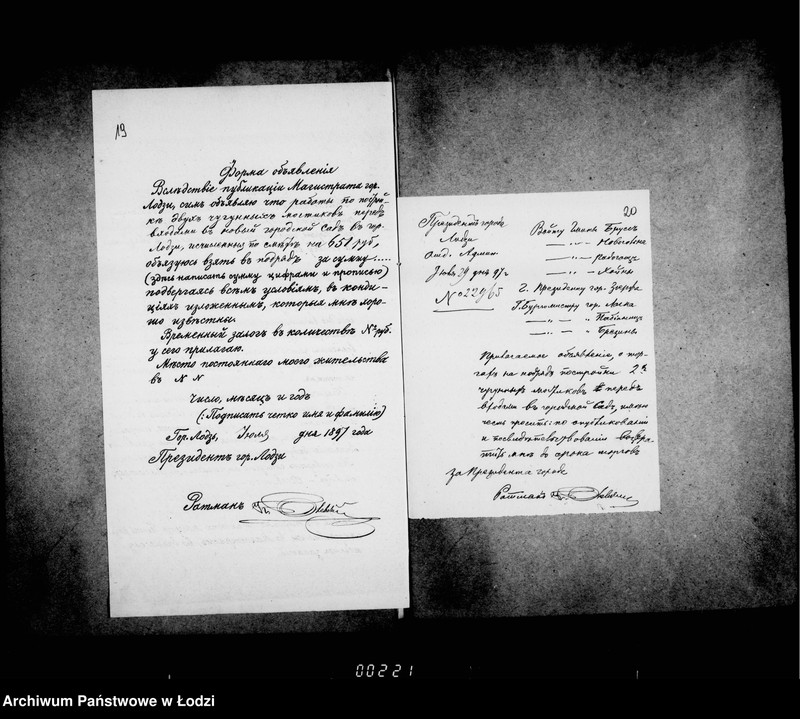 19
Форма объявленія
Вслѣдствіе публикаціи Магистрата гор.
Лодзи, симъ объявляю что работы по построй-
кѣ двухъ чугунныхъ мостиковъ передъ
входами въ новый городской Садъ въ гор.
Лодзи, исчисленныя по смѣтѣ на 651 руб.,
обязуюсь взять въ подрядъ за сумму.....
(здѣсь написать сумму цифрами и прописью)
подвергаясь всѣмъ условіямъ, въ конди-
ціяхъ изложеннымъ, которыя мнѣ хоро-
шо извѣстны.
Временный залогъ въ количествѣ N руб.
у сего прилагаю.
Мѣсто постояннаго моего жительства
въ N N
Число, мѣсяцъ и годъ
(: Подписать четко имя и фамилію)
Гор. Лодзь, Іюля дня 1897 года
Президентъ гор. Лодзи
Ратманъ
20
Президентъ города
Лодзи
Отд. Админ
Іюля 29 дня 97 г
№ 22965
Войту Гмины Брусъ
—„— Новосольна
—„— Радогощъ
—„— Хойны
Г. Президенту гор. Згержа
Г. Бургомистру гор. Ласка
—„— „ Пабіяницъ
—„— „ Брезинъ
Прилагаемое объявленіе, о тор-
гахъ на подрядъ постройки 2хъ
чугунныхъ мостиковъ передъ
входами въ городской Садъ, имѣю
честь просить по опубликованіи
и засвидѣтельствованіи возвра-
тить мнѣ до срока торговъ
за Президента города
Ратманъ